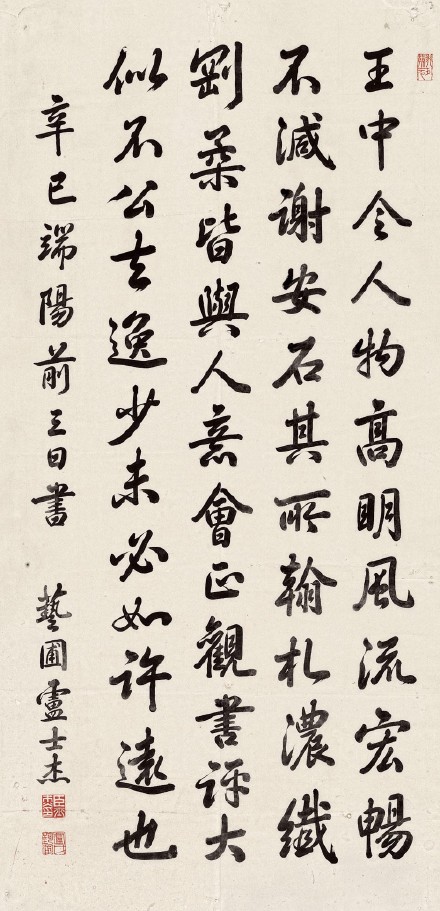 王中令人物高明風流宏暢
不減謝安石其所翰札濃纖
剛柔皆與人意會正觀書評大
似不公去逸少未必如許遠也
辛巳端陽前三日書
藝圃盧士杰